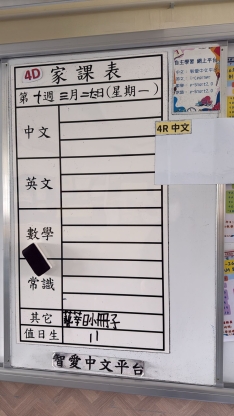 4D 家課表
第十週三月二七日(星期一)
中文
英文
數學
常識
其它
小冊子
值日生 11
智愛中文平台
4R 中文
自主學習 網上平台